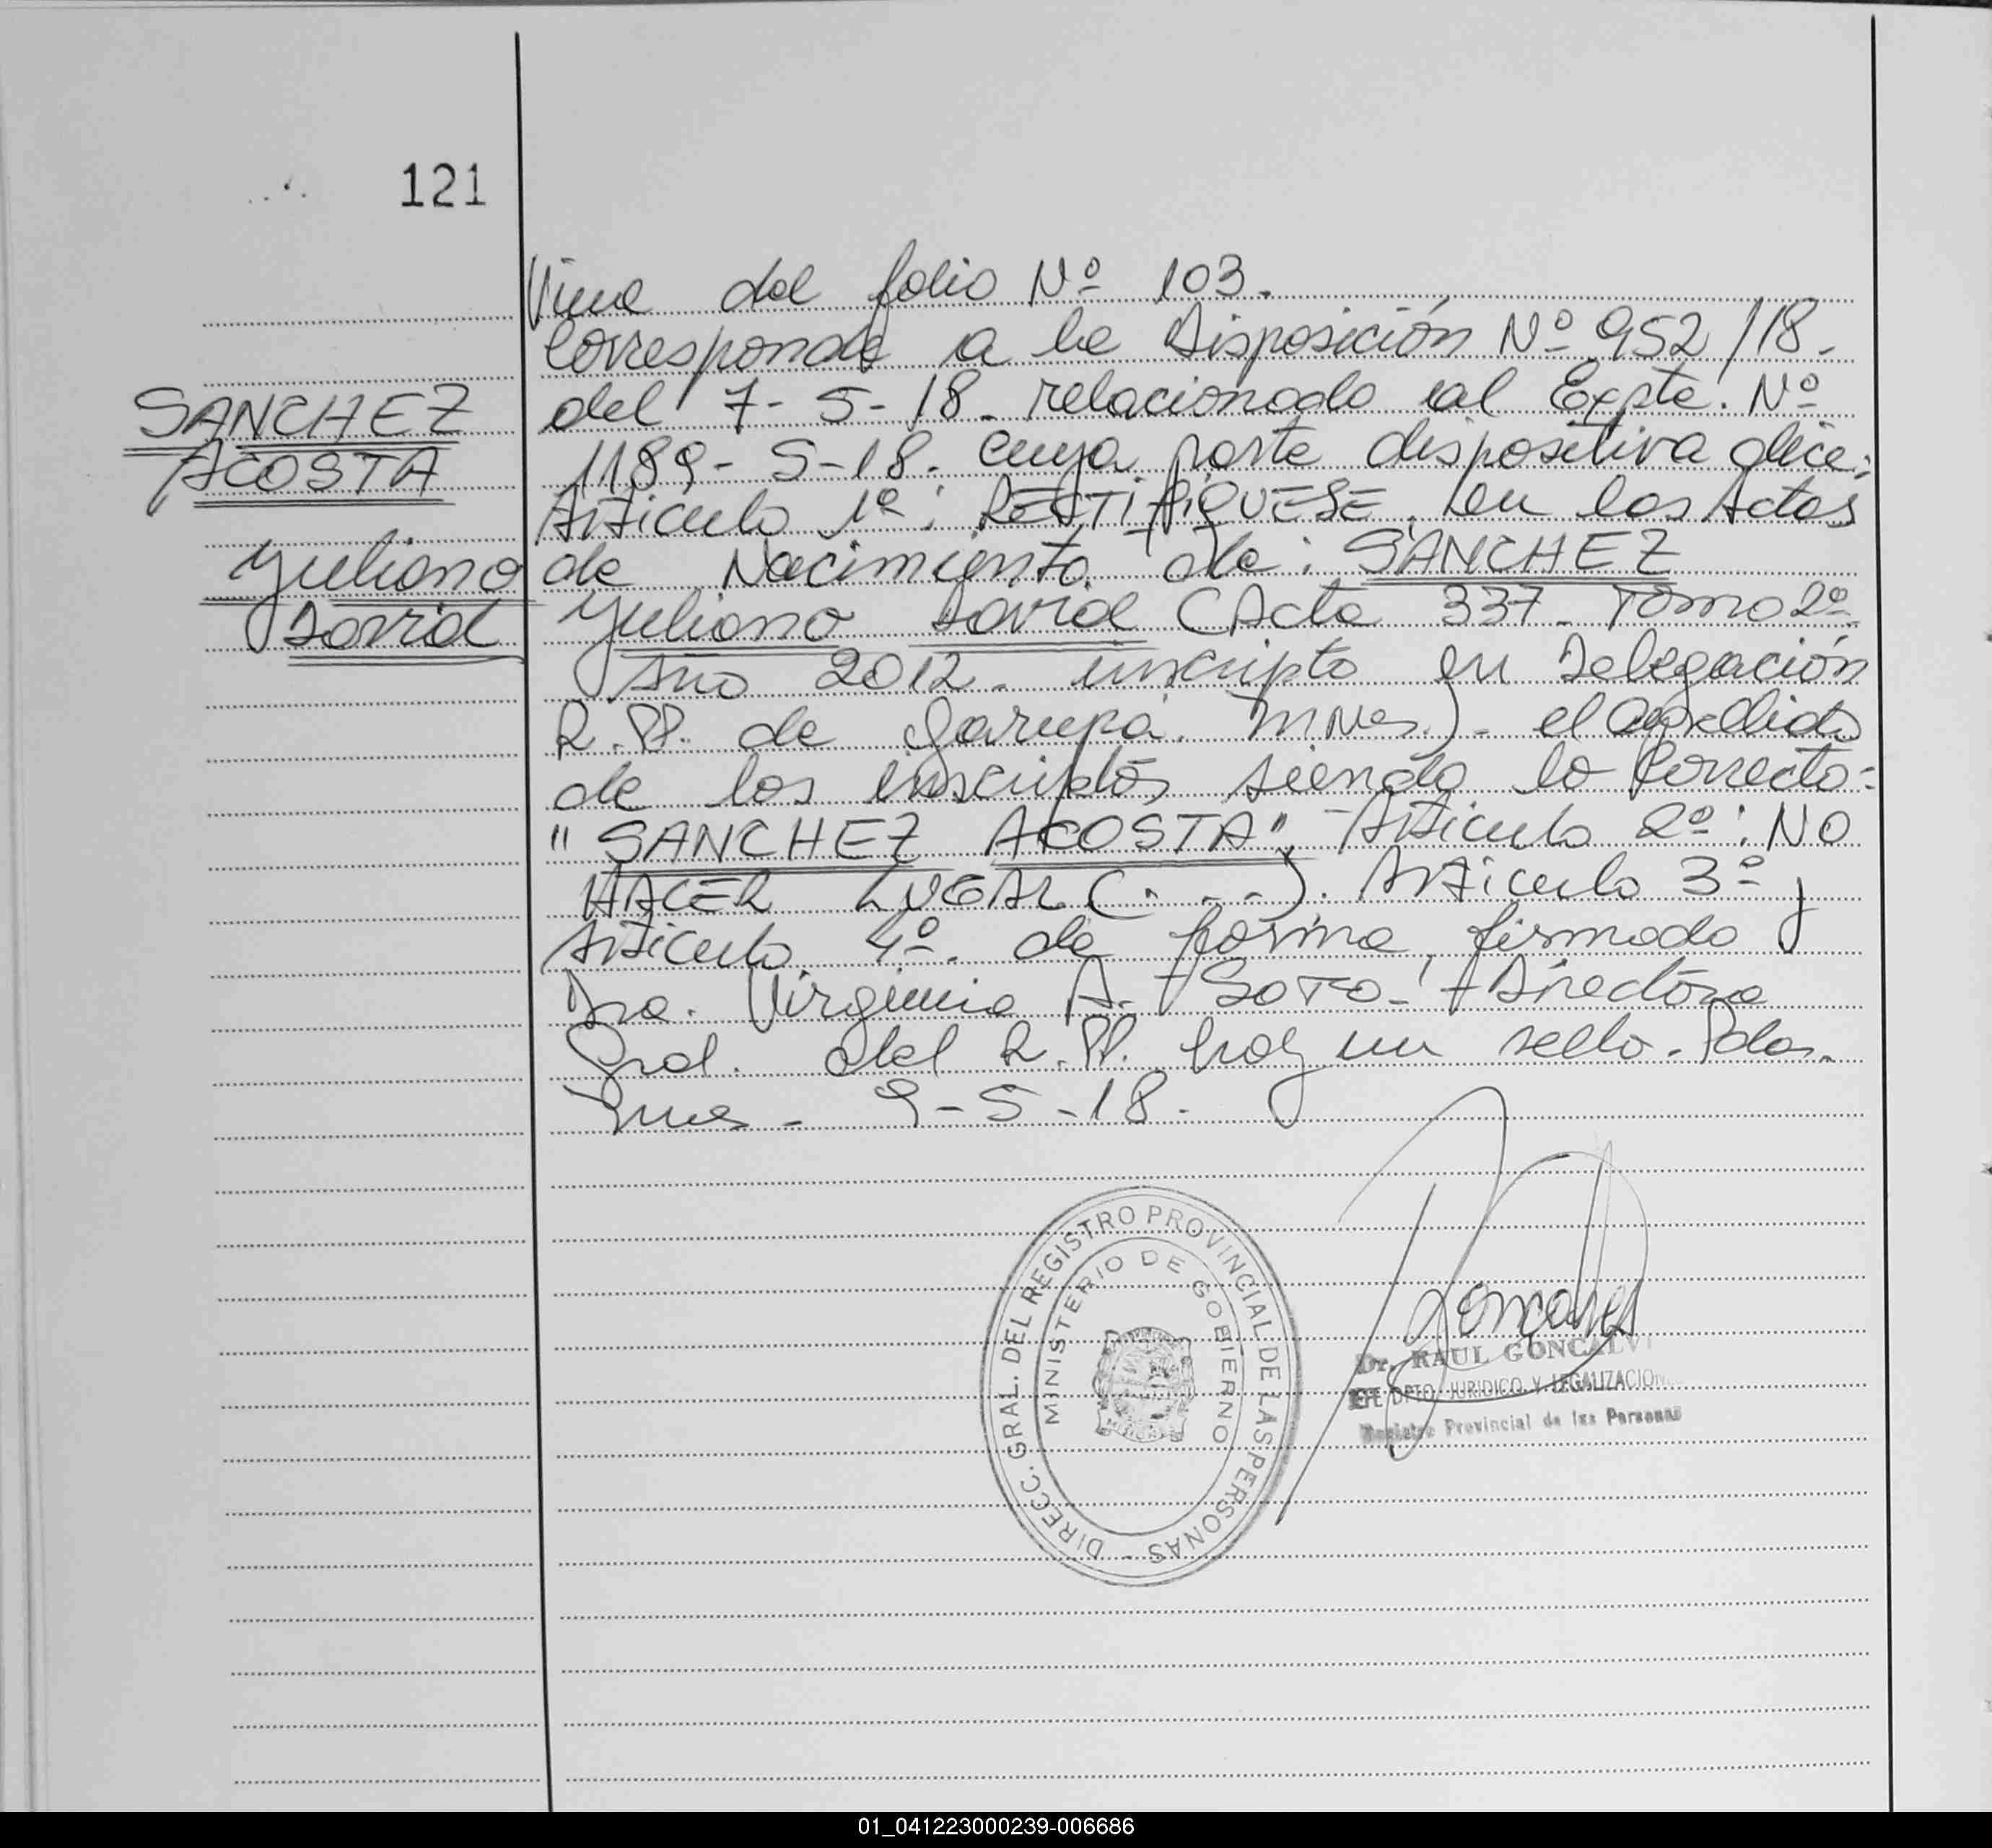 121
Viene del folio Nº 103.
Corresponde a la Disposición Nº 952/18.
del 7-5-18. relacionado al Expte. Nº
1189-S-18. cuya parte dispositiva dice:
Articulo 1º: RECTIFIQUESE, en las Actas
de Nacimiento de: SANCHEZ
Yuliano David (Acta 337- Tomo 2º
Año 2012- inscripto en Delegación
R.PP. de Garupá. Mnes.)- el apellido
de los inscriptos, siendo lo Correcto:
"SANCHEZ ACOSTA". Articulo 2º: NO
HACER LUGAR (...). Articulo 3º y
Articulo 4º. de forma, firmado
Dra. Virginia A. Soto- Directora
Gral. del R.PP. hay un sello. Pdas.
Mnes- 9-5-18.
SANCHEZ
ACOSTA
Yuliano
David
DIRECC. GRAL. DEL REGISTRO PROVINCIAL DE LAS PERSONAS -
MINISTERIO DE GOBIERNO
Dr. RAUL GONCALV
DPTO. JURIDICO Y LEGALIZACION
Registro Provincial de las Personas
01_041223000239-006686